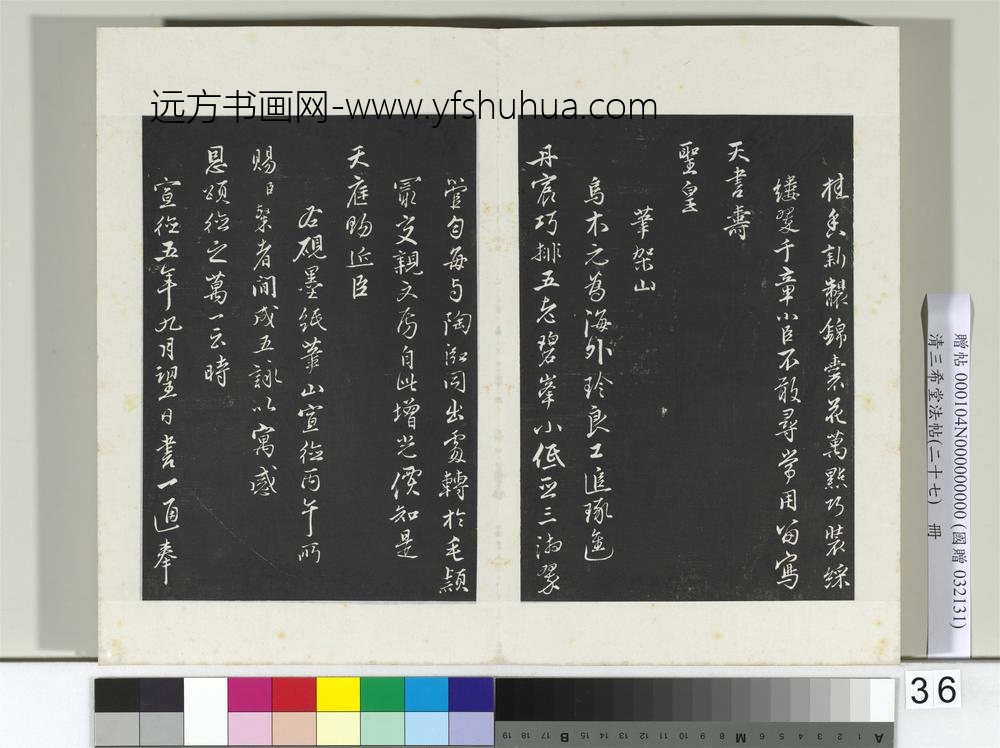 远方书画网-www.yfshuhua.com
新製錦雲花萬點巧裝綵
縷翠千章小臣不敢尋常用留寫
天書壽
聖皇
筆架山
烏木元為海外珍良工追琢進
丹宸巧排五老碧峯小低亞三湘翠
勻每與陶泓同出處轉於毛穎
最交親文房自此增光價知是
天庭賜近臣
右硯墨紙筆山宣德丙午所
賜日者間成五詠以寓感
恩頌德之萬一云時
宣德五年九月望日書一通奉
贈帖 000104N000000000 (國贈 032131)
清三希堂法帖(二十七) 冊
36
A 1 2 3 4 5 6 M 8 9 10 11 12 13 14 15 B 17 18 19